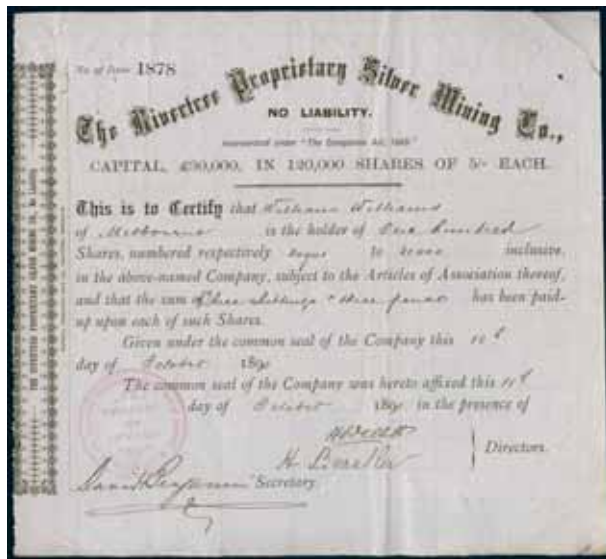 No of Issue 1878
The Rivertree Proprietary Silver Mining Co.,
NO LIABILITY.
Incorporated under "The Companies Act,
CAPITAL, £30,000, IN 120,000 SHARES OF 5/- EACH.
This is to Certify that William Williams
of Melbourne is the holder of One hundred
Shares, numbered respectively to inclusive,
in the above-named Company, subject to the Articles of Association thereof,
and that the sum of Three shillings & three pence has been paid-
up upon each of such Shares.
Given under the common seal of the Company this 10th
day of October 189
The common seal of the Company was hereto affixed this 10th
day of October 189 in the presence of
Directors.
Secretary.
THE RIVERTREE PROPRIETARY SILVER MINING CO., NO LIABILITY